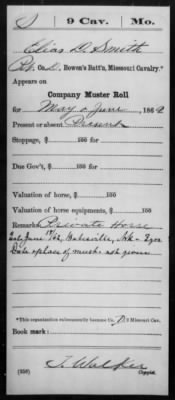 S | 9 Cav. | Mo.
Elias D. Smith
Pvt., Co. D, Bowen's Batt'n, Missouri Cavalry.*
Appears on
Company Muster Roll
for May & June, 1862
Present or absent Present
Stoppage, $ 100 for
Due Gov't, $ 100 for
Valuation of horse, $ 100
Valuation of horse equipments, $ 100
Remarks: Private Horse
June 17/62, Batesville, Ark
Date & place of muster not given
*This organization subsequently became Co. D, 9 Missouri Cav.
Book mark:
J. Walker
(358) Copyist.